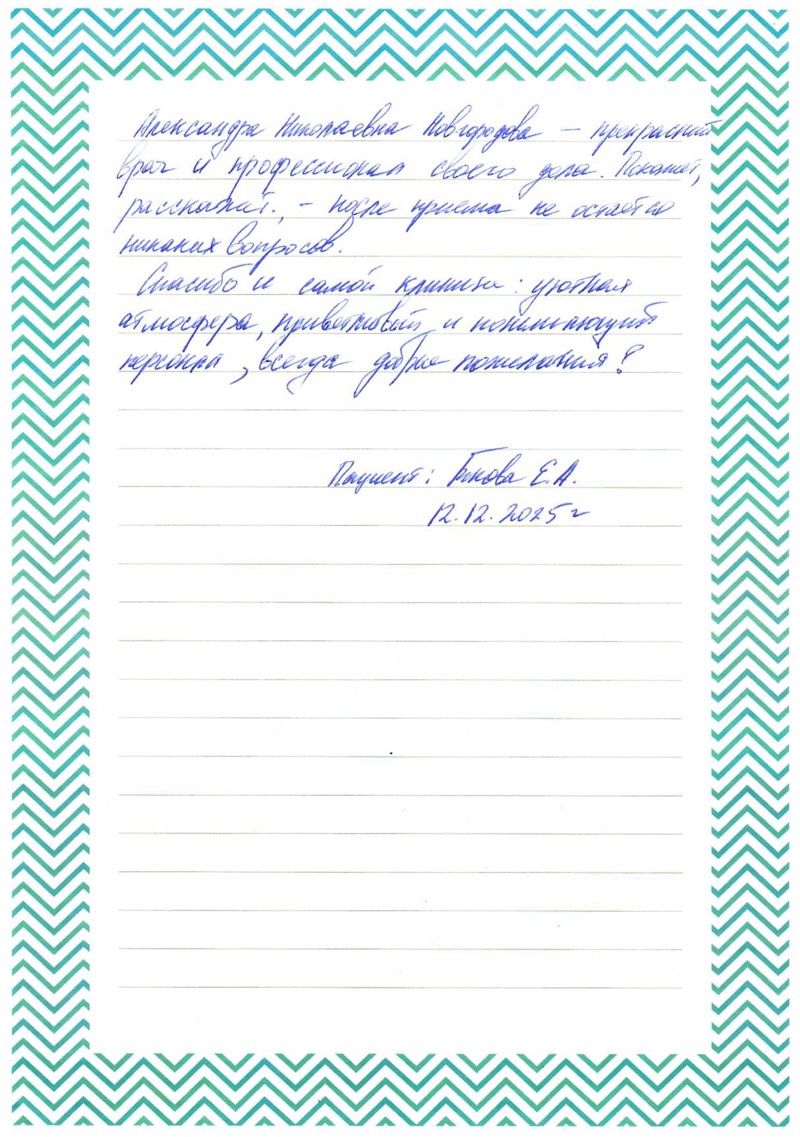 Александра Николаевна Новгородова – прекрасный
врач и профессионал своего дела. Покажет,
расскажет., – после приема не остается
никаких вопросов.
Спасибо и самой клинике: уютная
атмосфера, приветливый и понимающий
персонал, всегда добрые пожелания!
Пациент: Е.А.
12.12.2025 г